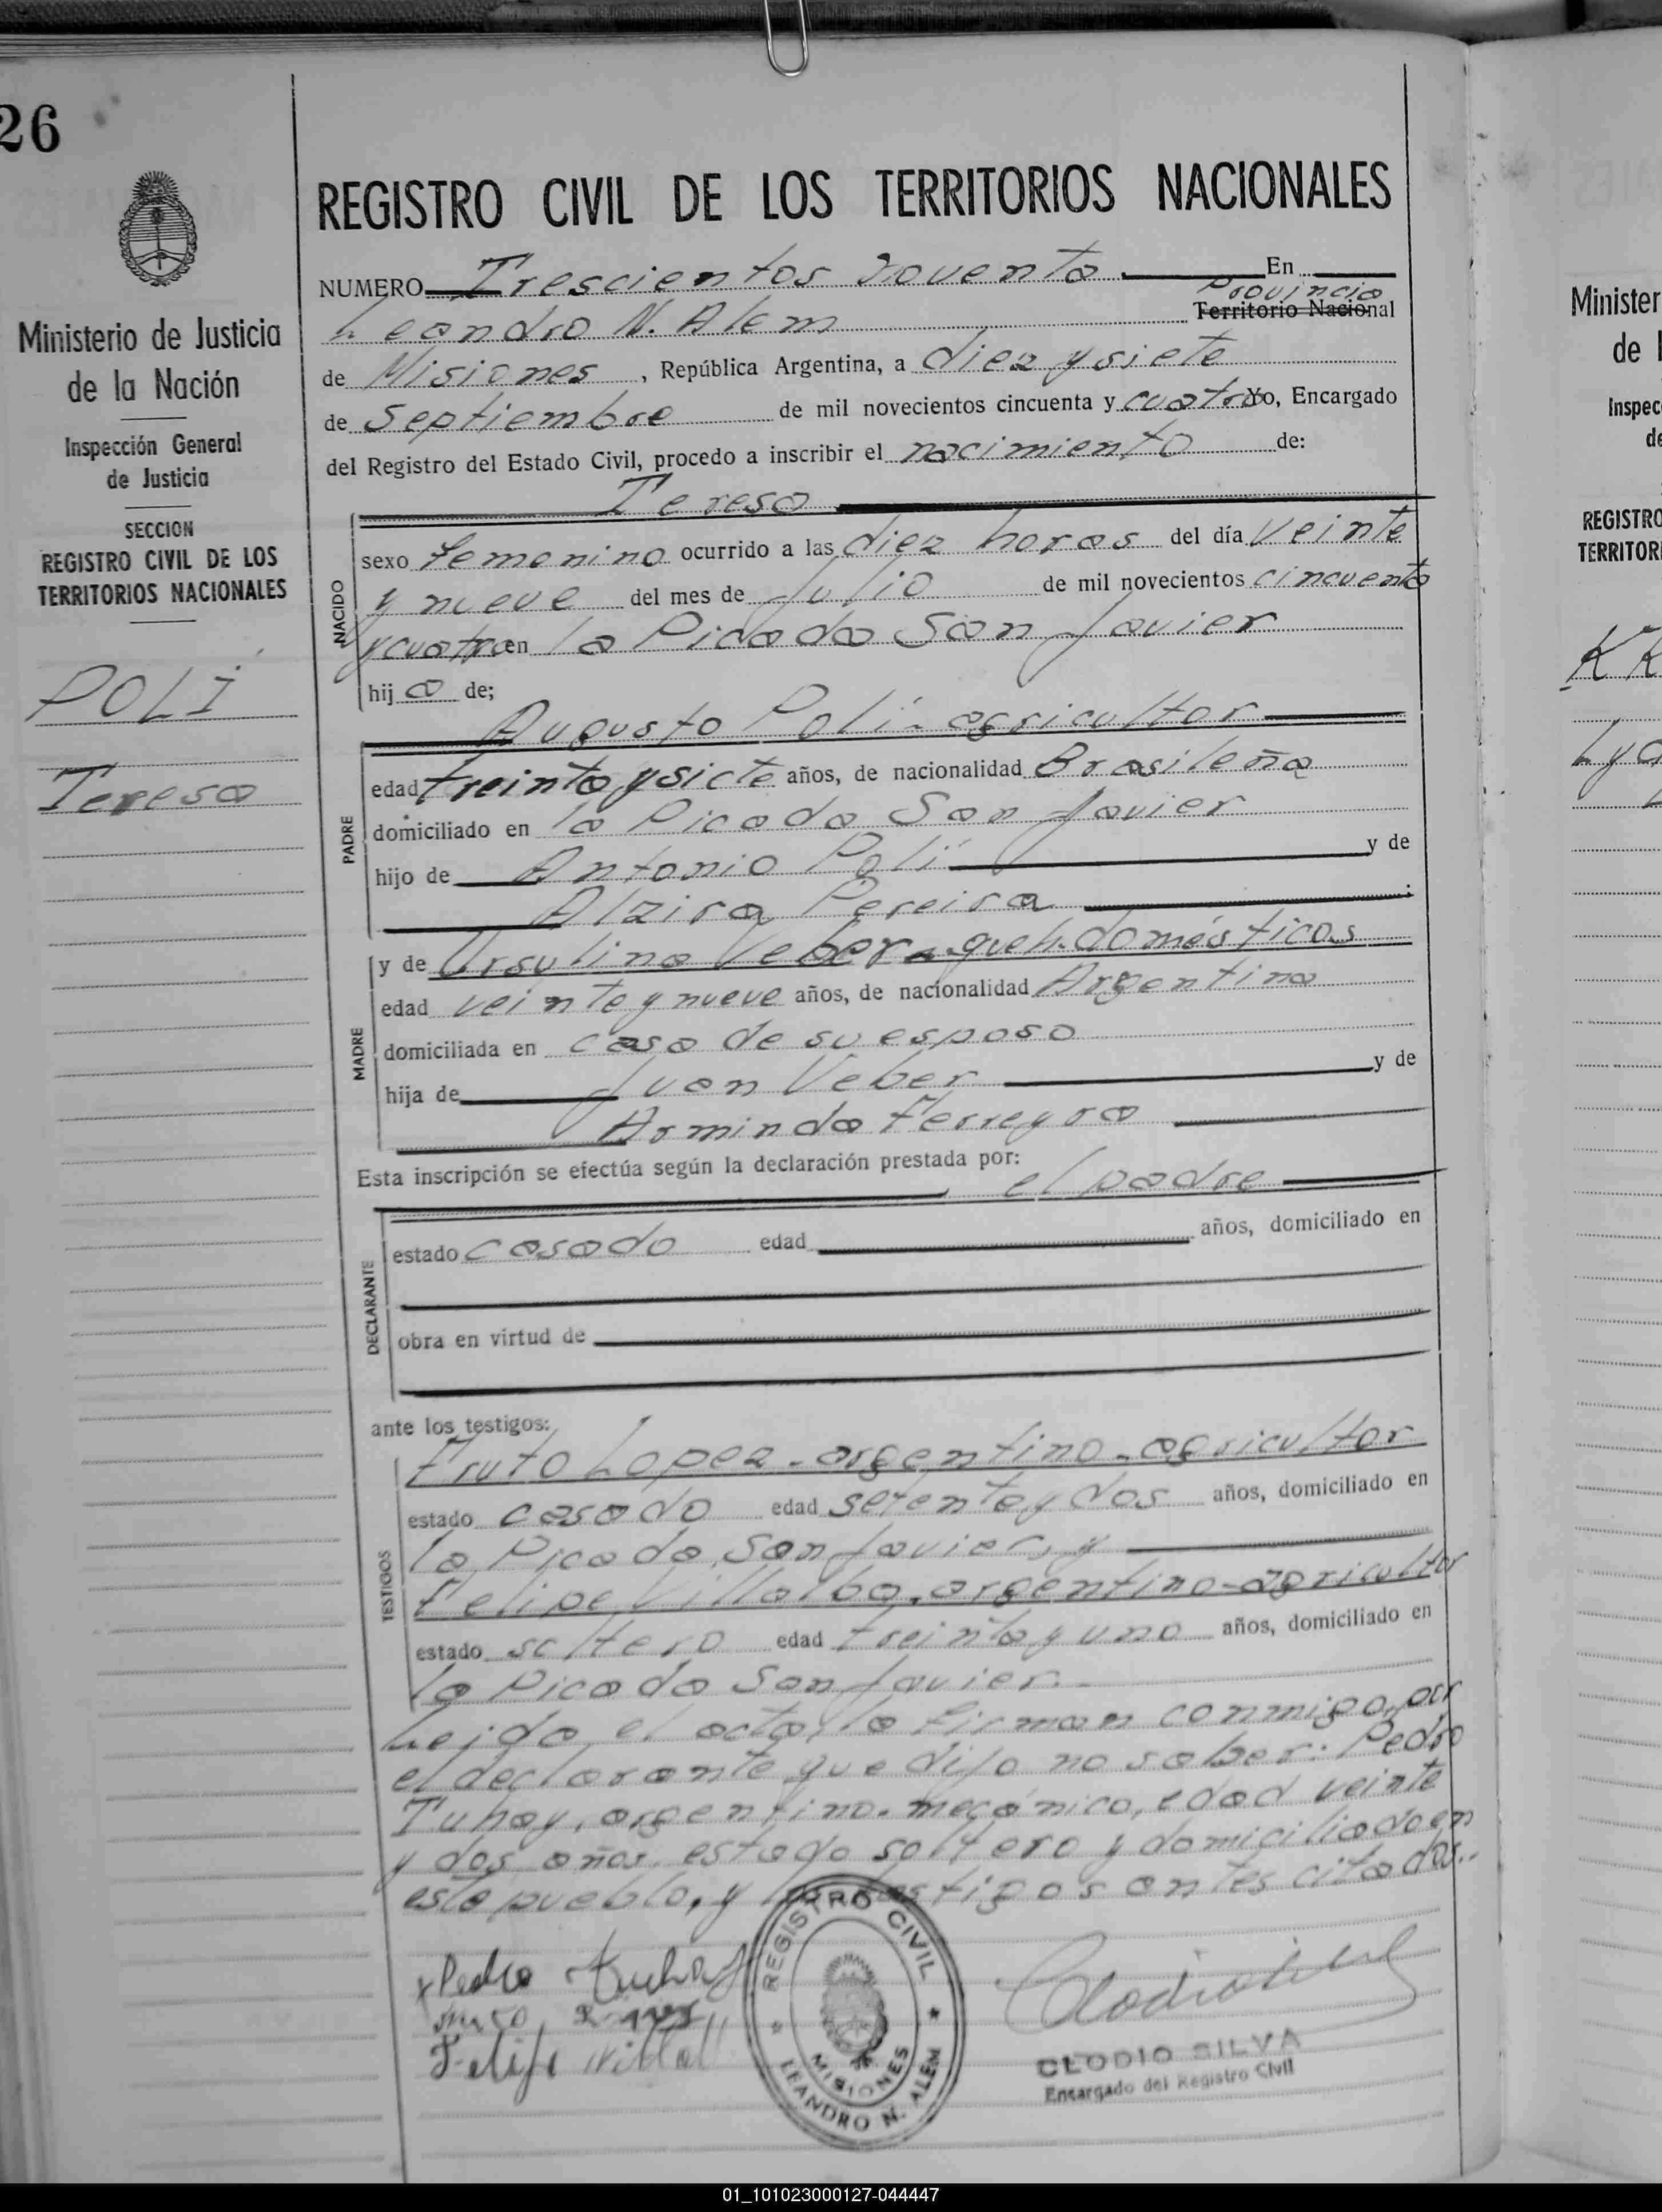 26
REGISTRO CIVIL DE LOS TERRITORIOS NACIONALES
Ministerio de Justicia
de la Nación
Inspección General
de Justicia
SECCION
REGISTRO CIVIL DE LOS
TERRITORIOS NACIONALES
POLI
Teresa
NUMERO Trescientos Noventa En
Provincia
Leandro N. Alem Territorio Nacional
de Misiones, República Argentina, a diez y siete
de Septiembre de mil novecientos cincuenta y cuatro Yo, Encargado
del Registro del Estado Civil, procedo a inscribir el nacimiento de:
Teresa
NACIDO
sexo femenino ocurrido a las diez horas del día veinte
y nueve del mes de Julio de mil novecientos cincuenta
y cuatro en la Picada San Javier
hij a de;
Augusto Poli - agricultor
PADRE
edad treinta y siete años, de nacionalidad Brasileña
domiciliado en la Picada San Javier
hijo de Antonio Poli y de
Alzira Pereira ;
MADRE
y de Ursulina Veber - queh. domésticos
edad veinte y nueve años, de nacionalidad Argentina
domiciliada en casa de su esposo
hija de Juan Veber y de
Arminda Ferreyra
Esta inscripción se efectúa según la declaración prestada por:
el padre
DECLARANTE
estado casado edad años, domiciliado en
obra en virtud de
ante los testigos:
TESTIGOS
Fruto Lopez - argentino - agricultor
estado casado edad setenta y dos años, domiciliado en
la Picada San Javier, y
Felipe Villalba, argentino - agricultor
estado soltero edad treinta y uno años, domiciliado en
la Picada San Javier.
Leida el acta, la firman conmigo, por
el declarante que dijo no saber: Pedro
Tuhay, argentino. mecánico, edad veinte
y dos años, estado soltero y domiciliado en
este pueblo, y los testigos antes citados.
Pedro
Felipe
REGISTRO CIVIL
MISIONES
LEANDRO N. ALEM
CLODIO SILVA
Encargado del Registro Civil
Minister
de l
Inspec
de
REGISTRO
TERRITORI
01_101023000127-044447